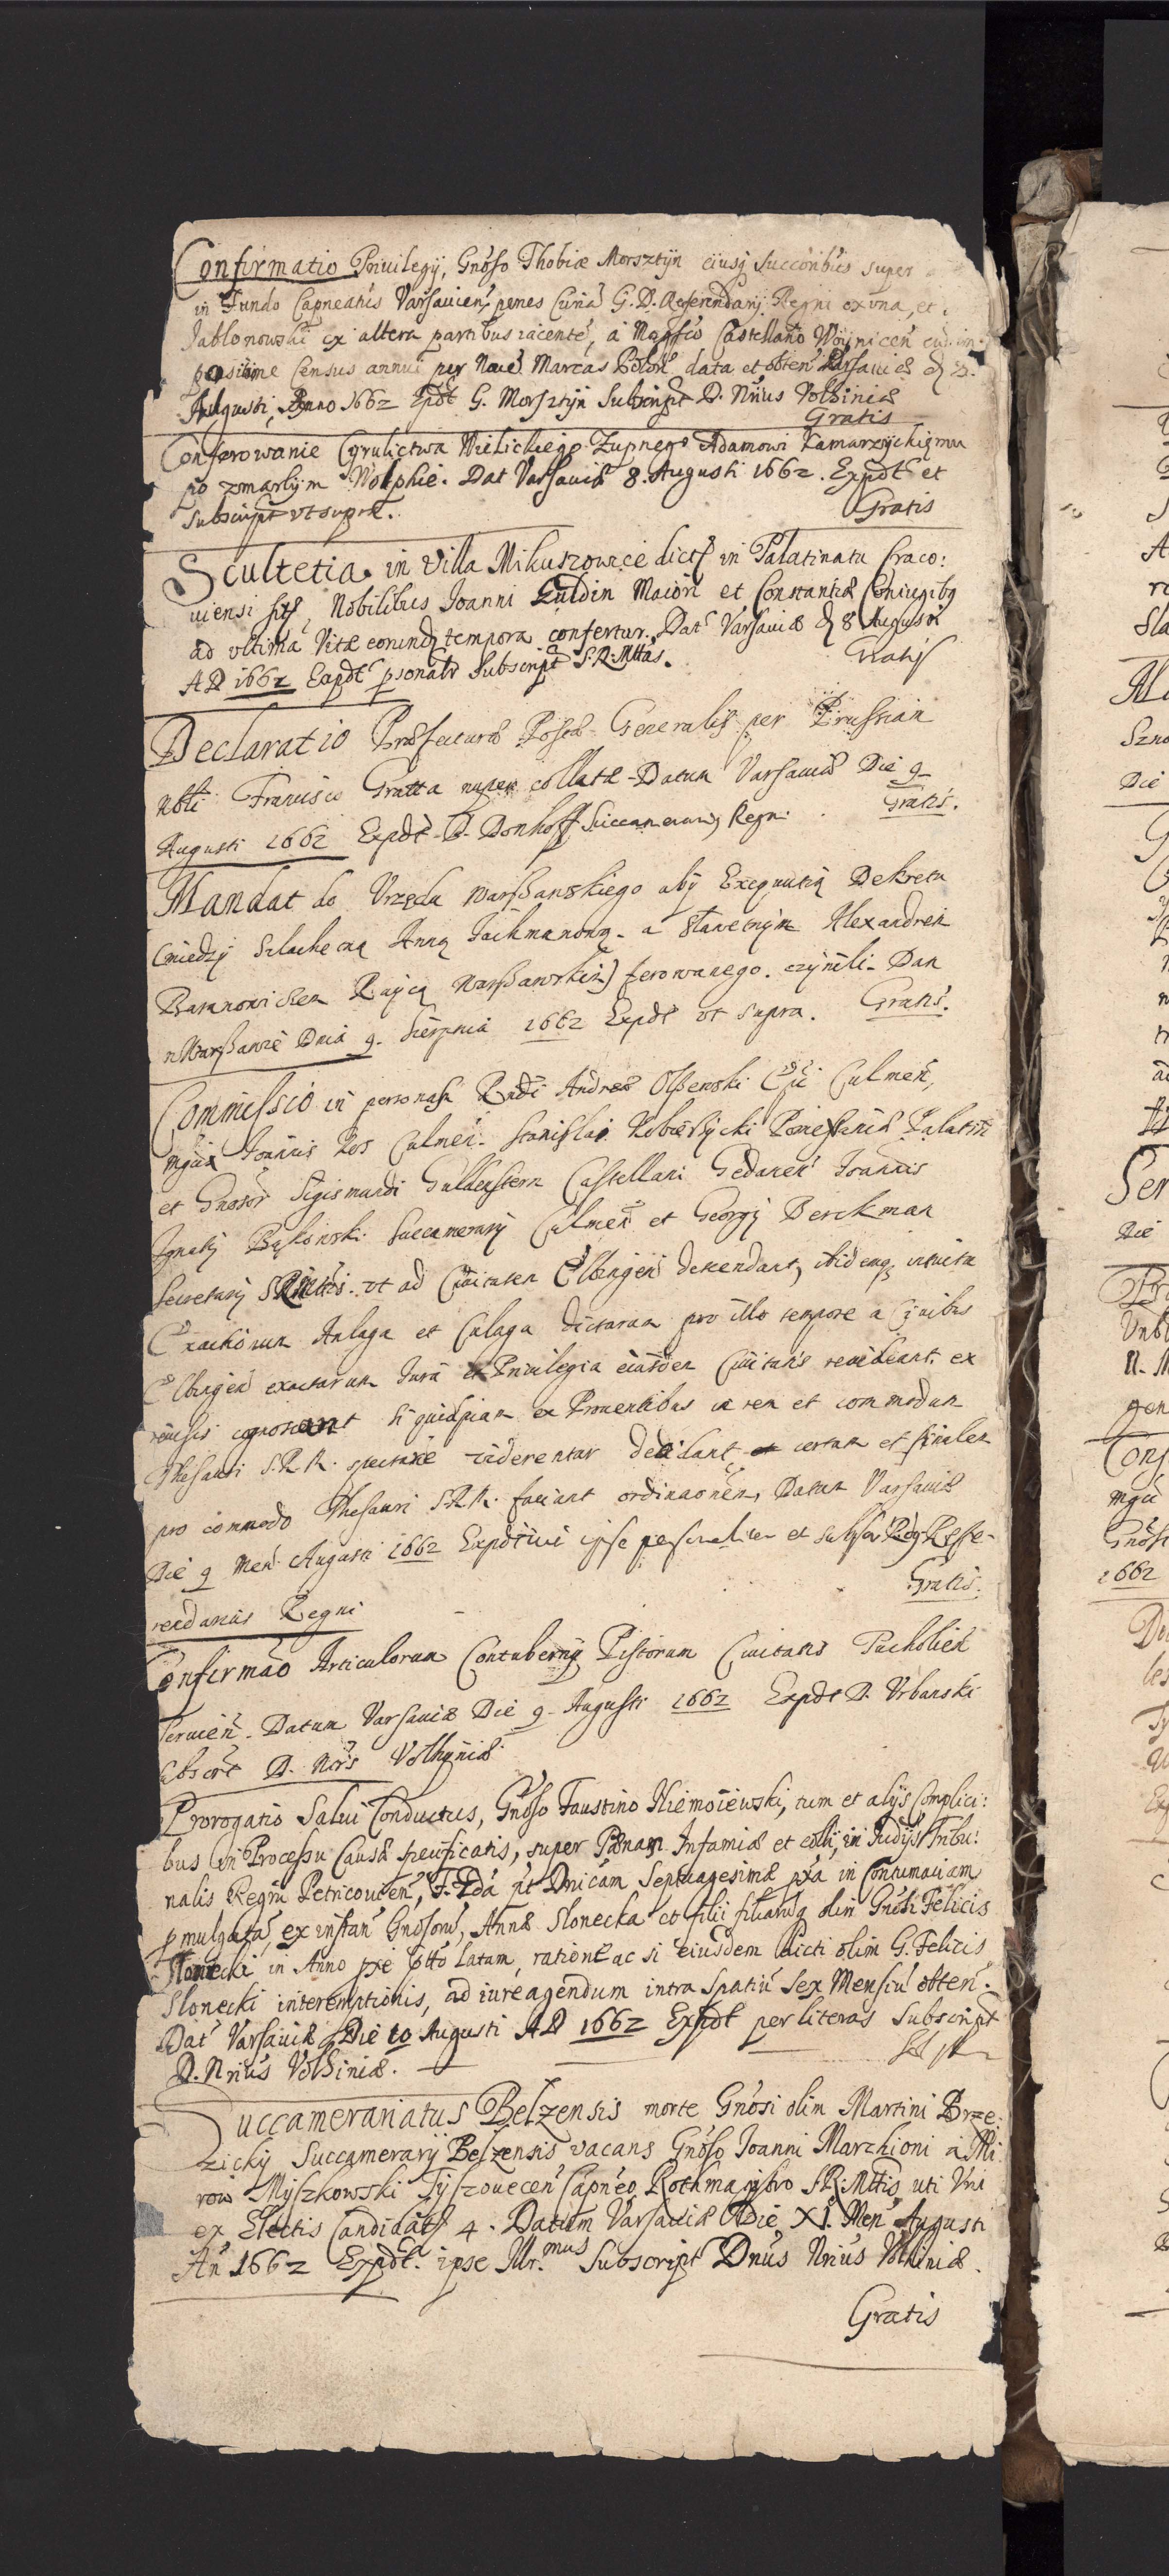 Confirmatio Priuilegij, Gnoso Thobiæ Morsztÿn eiusq Succoribus super
in Fundo Capneatus Varsauien, penes Curia G. D. Referendarij Regni ex una, et
Jablonowski ex altera partibus iacente, a Magfico Castellano Woÿnicen cum in
positione Census annui per Marcas Polon data et obten Varsauiæ
Augusti, Anno 1662 Expdt G. Morsztÿn Subscript D. Nrius Volhiniæ
Gratis
Conferowanie Cyrulictwa Wielickiego Zupneg° Adamowi Kamarzyckiemu
po zmarłym Wolphie. Dat Varsauiæ 8. Augusti 1662. Expdt et
Subscript vt supra.
Gratis
Scultetia in Villa Mikuszowice dicta in Palatinatu Craco:
uiensi sita, Nobilibus Joanni Guldin Maiori et Constantiæ Coniugibq
ad vltima Vitæ eorundq tempora confertur. Dat Varsauiæ D 8 Augusti
AD 1662 Expdt psonalr Subscript S. R. Mttas.
Gratis
Declaratio Præfecturæ Postæ Generalis per Prussian
Nbli Francisco Gratta nuper collatæ - Datum Varsauiæ Die 9
Augusti 1662 Expdt D. Donhoff Succamerarig Regni
Gratis.
Mandat do Vrzędu warßawskiego aby Exequutią Dekretu
(miedzÿ Szlachetną Anną Jachmanową a Sławetnÿm Alexandrem
Baranowiczem Raÿcą Warßawskim) ferowanego. czÿnili. Dan
w Warßawie Dnia 9. Sierpnia 1662 Expdt vt supra. Gratis.
Commissio in personas Rndi Andreæ Olßewski Culmen,
Mgci Joannis Kos Culmen. Stanislai Kobierzÿcki Pomeraniæ Palatin
et Gnosor Sigismundi Guldenstern Castellani Gedanen Joannis
Ignatij Bąkowski Succamerarij Culmen et Georgij Berckman
Secretarij SRMttis. vt ad Ciuitatem Elbingen descendant, ibidemq intuitu
Exactionum Anlaga et Culaga dictarum pro illo tempore a Ciuibus
Elbingen exactarum Iura et Priuilegia eiusdem Ciuitatis reuideant. ex
reuisis cognoscant si quidpiam ex Prouentibus in rem et commodum
Thesauri S.R.M. spectare viderentur decidant, certam et finalem
pro commodo Thesauri S.R.M. faciant ordinaonem, Datum Varsauiæ
Die 9 Men Augusti 1662 Expdtiui ipse personaliter et subscr Refe-
rendarius Regni
Gratis.
Confirmao Articulorum Contubernij Pistorum Ciuitatis Tucholien
Seruien. Datum Varsauiæ Die 9. Augusti 1662 Expdt D. Vrbanski
Subscrt D. Nors Volhÿniæ
Prorogatio Salui Conductus, Gnoso Faustino Niemoiewski, tum et alijs Complici:
bus in Processu Causæ specificatis, super Pænam Infamiæ et colli, in Judijs Tribu:
nalis Regni Petricouien, F. 2da pt Dnicam Septuagesimæ pxa in Contumaciam
pmulgata, ex instan Gnosoru, Annæ Slonecka et filij filiarumq olim Gnosi Felicis
Slonecki in Anno pxe ptto latam, ratione ac si eiusdem dicti olim G. Felicis
Slonecki interemptionis, ad iure agendum intra spatiu Sex Mensiu obten.
Dat Varsauiæ Die 10 Augusti AD 1662 Expdt per literas Subscript
D. Nrius Volhiniæ.
Succamerariatus Belzensis morte Gnosi olim Martini Brze:
zickÿ Succamerarij Belzensis vacans Gnoso Joanni Marchioni a Mi
row Myszkowski Tyszouecen Capneo Rothmagistro S R Mttis uti Vni
ex Electis Candidatis 4. Datum Varsauiæ Die XI. Men Augusti
An 1662 Expdt. ipse Illr.mus Subscript Dnus Nrius Volhiniæ.
Gratis